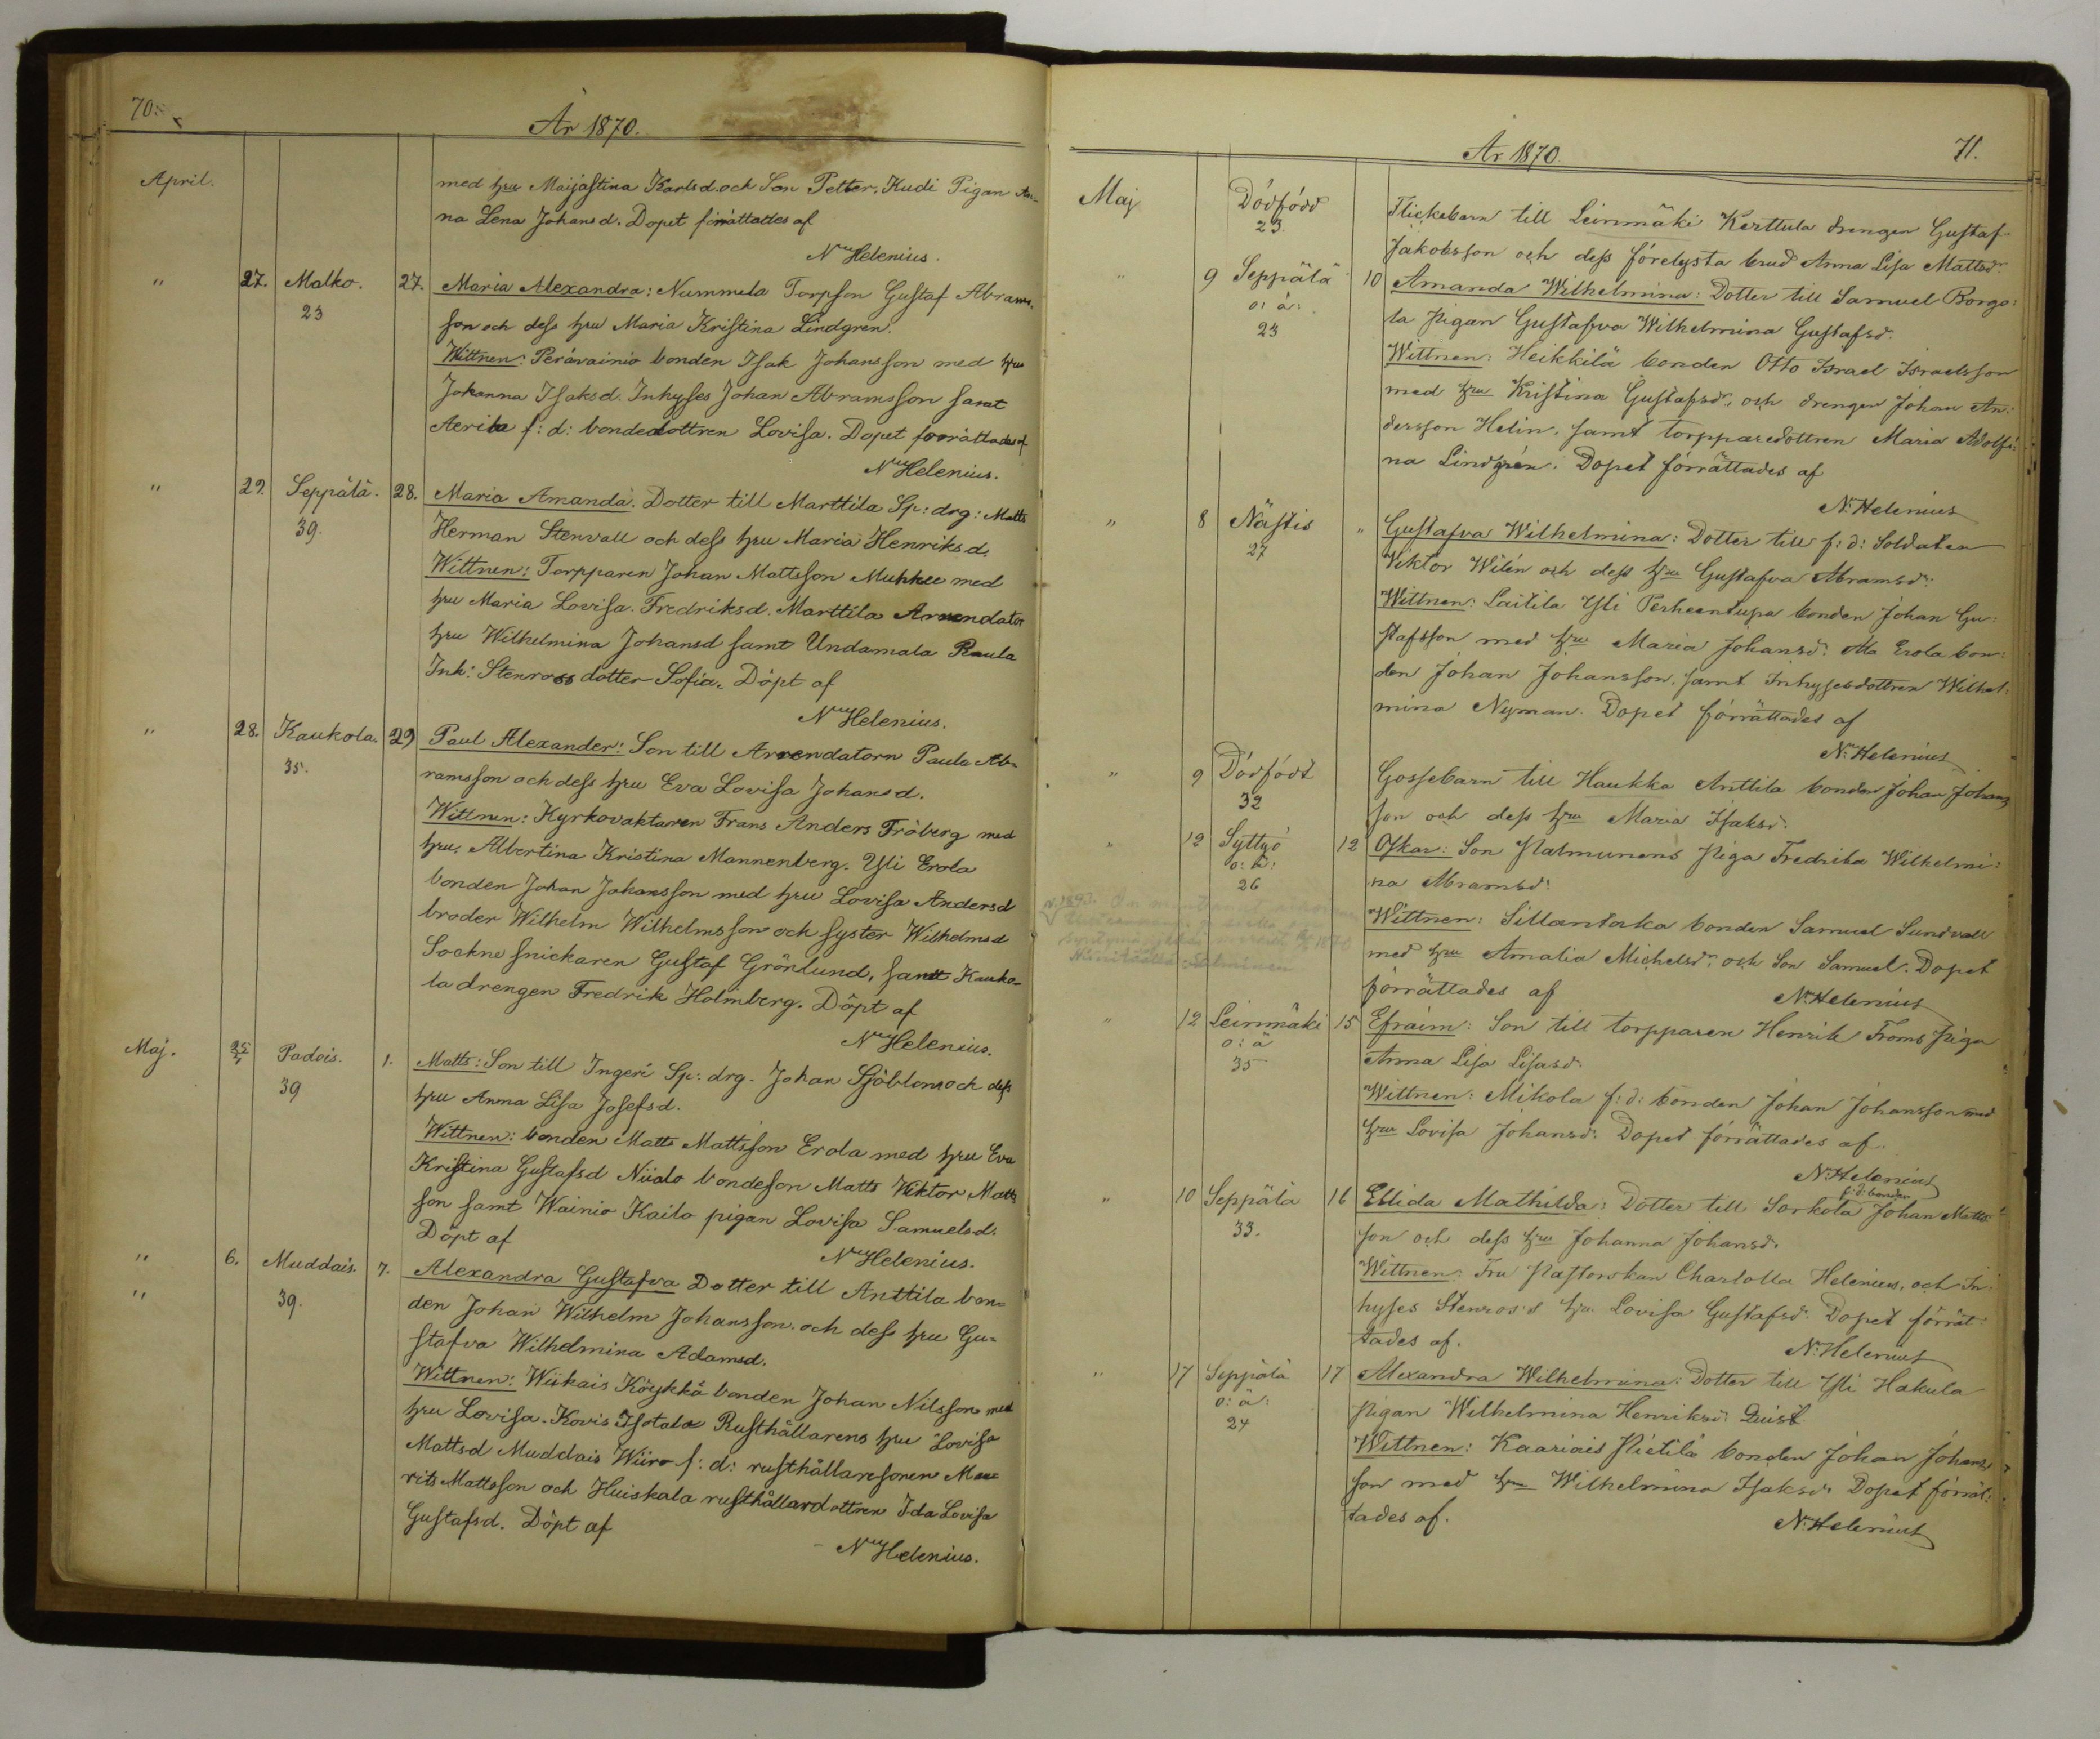 70.
År 1870.
April.
med hru Maijastina Karlsd. och Son Petter. Kudi Pigan An-
na Lena Johansd. Dopet förrättades af
Nils Helenius.
" 27. Malko. 27. Maria Alexandra: Nummela Torpson Gustaf Abrams-
23
son och dess hru Maria Kristina Lindgren.
Wittnen: Perävainio bonden Isak Johansson med hru
Johanna Isaksd. Inhyses Johan Abramsson samt
Aerila f: d: bondedottren Lovisa. Dopet förrättades af
Nils Helenius.
" 29. Seppälä. 28. Maria Amanda. Dotter till Marttila Sp: drg: Matts
39.
Herman Stenvall och dess hru Maria Henriksd.
Wittnen: Torpparen Johan Mattsson Muhkee med
hru Maria Lovisa Fredriksd. Marttila Arrendator
hru Wilhelmina Johansd samt Undamala Raula
Inh: Stenross dotter Sofia. Döpt af
Nils Helenius.
" 28. Kaukola. 29 Paul Alexander: Son till Arrendatorn Paulu Ab-
35.
ramsson och dess hru Eva Lovisa Johansd.
Wittnen: Kyrkovaktaren Frans Anders Fröberg med
hru. Albertina Kristina Mannenberg. Yli Erola
bonden Johan Johansson med hru Lovisa Andersd
broder Wilhelm Wilhelmsson och syster Wilhelmsd
Sockne snickaren Gustaf Grönlund, samt Kauko-
la drengen Fredrik Holmberg. Döpt af
Nils Helenius.
Maj. 25/4 Padois. 1. Matts: Son till Ingeri Sp: drg. Johan Sjöblom och dess
39
hru Anna Lisa Josefsd.
Wittnen: bonden Matts Mattsson Erola med hru Eva
Kristina Gustafsd Niialo bondeson Matts Viktor Matts
son samt Wainio Kailo pigan Lovisa Samuelsd.
Döpt af
Nils Helenius.
" 6. Muddais. 7. Alexandra Gustafva Dotter till Anttila bon-
" 39.
den Johan Wilhelm Johansson och dess hru Gu-
stafva Wilhelmina Adamsd.
Wittnen: Wiikais Köykkä bonden Johan Nilsson med
hru Lovisa. Kovis Isotalo Rusthållarens hru Lovisa
Mattsd Muddais Wiiro f: d: rusthållaresonen Mau-
rits Mattsson och Huiskala rusthållardottren Ida Lovisa
Gustafsd. Döpt af
Nils Helenius.
År 1870. 71.
Maj Dödfödd Flickebarn till Leinmäki Kerttula drengen Gustaf
23
Jakobsson och dess förelysta brud Anna Lisa Mattsd:
" 9 Seppälä 10 Amanda Wilhelmina: Dotter till Samuel Borgo:
o: ä:
23
la pigan Gustafva Wilhelmina Gustafsd.
Wittnen: Heikkilä bonden Otto Israel Israelsson
med hru Kristina Gustafsd:, och drengen Johan An:
dersson Helin, samt torpparedottren Maria Adolfi:
na Lindgrén. Dopet förrättades af
Ns Helenius
" 8 Nästis " Gustafva Wilhelmina: Dotter till f: d: Soldaten
27
Viktor Wilén och dess hru Gustafva Abramsd:
Wittnen: Laitila Yli Perheentupa bonden Johan Gu:
stafsson med hru Maria Johansd: Ala Erola bon:
den Johan Johansson, samt Inhysesdottren Wilhel:
mina Nyman. Dopet förrättades af
Ns Helenius
" 9 Dödfödt Gossebarn till Haukka Anttila bonden Johan Johans
32
son och dess hru Maria Isaksd.
" 12 Syttyö 12 Oskar: Son Palmunens Piga Fredrika Wilhelmi:
o: ä:
26
na Abramsd:
Wittnen: Sillantaka bonden Samuel Sundvall
med hru Amalia Michelsd:, och Son Samuel. Dopet
förrättades af Ns Helenius
" 12 Leinmäki 15 Efraim: Son till torpparen Henrik Froms Piga
o: ä
35
Anna Lisa Lisasd.
Wittnen: Mikola f: d: bonden Johan Johansson med
hru Lovisa Johansd: Dopet förrättades af.
Ns Helenius
f: d: bonden
" 10 Seppälä 16 Ellida Mathilda: Dotter till Sorkola Johan Matts
33.
son och dess hru Johanna Johansd.
Wittnen: Fru Pastorskan Charlotta Helenius, och In:
hyses Stenros's hru Lovisa Gustafsd: Dopet förrät:
tades af. Ns Helenius
" 17 Seppälä 17 Alexandra Wilhelmina: Dotter till Yli Hakula
o: ä:
24
pigan Wilhelmina Henriksd: Quist
Wittnen: Kaariais Pietilä bonden Johan Johans
son med hru Wilhelmina Isaksd: Dopet förrät:
tades af. Ns Helenius